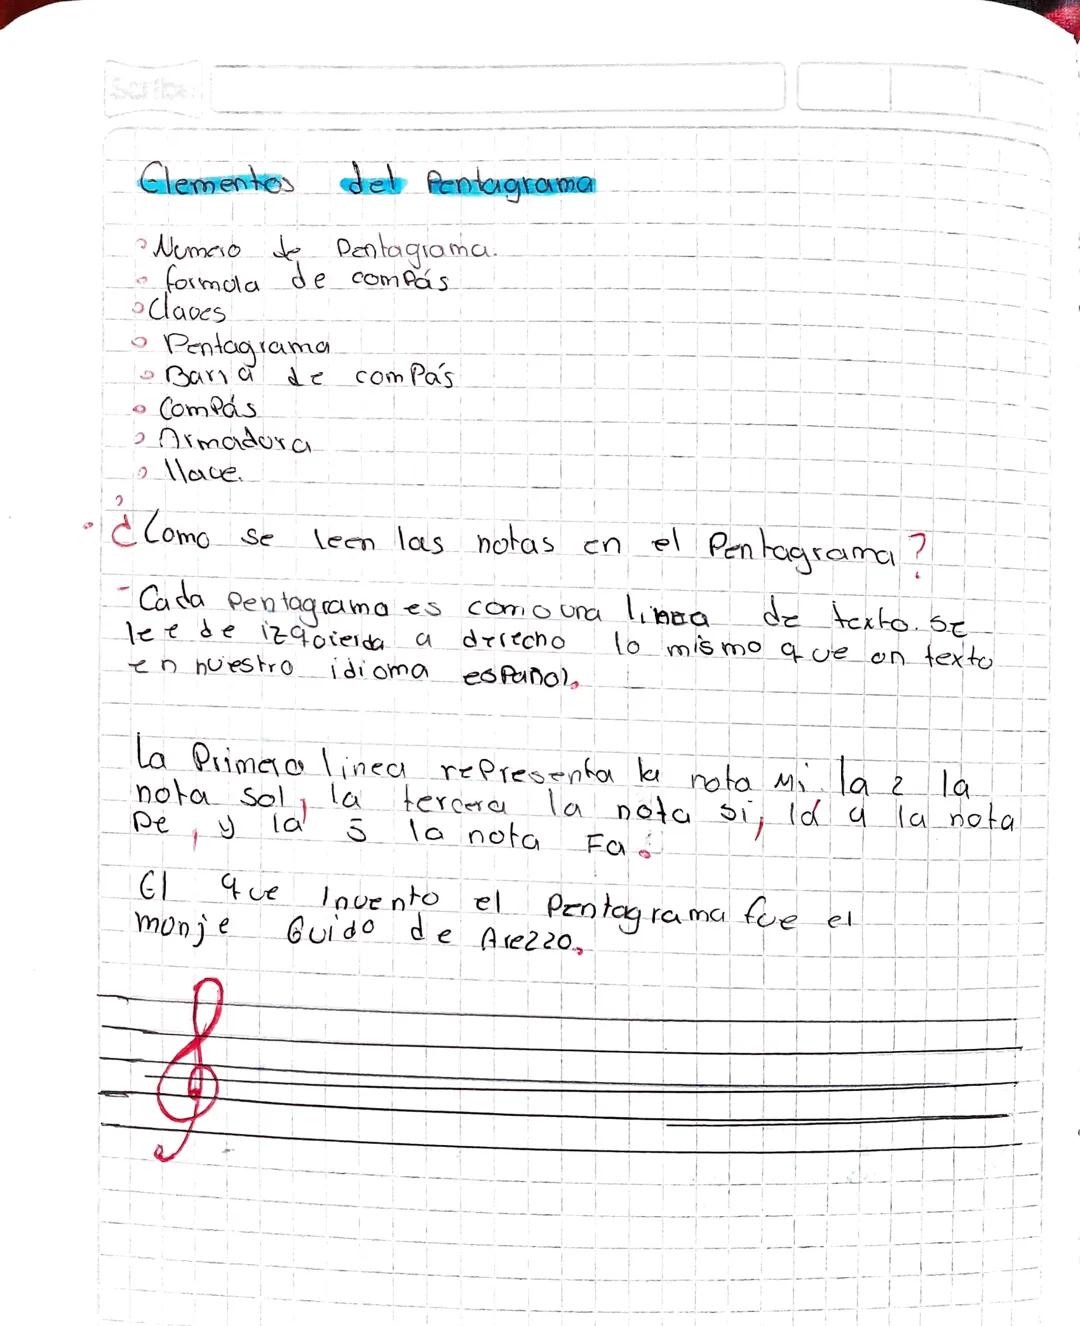 Scribe
Elementos del Pentagrama
Numero de Pentagrama.
formula de compás
Claves
Pentagrama
Barra de compás
Compás
Armadura
llave.
¿Como se leen las notas en el Pentagrama?
- Cada Pentagrama es como una linea de texto. se
lee de izquierda a derecho lo mismo que un texto
en nuestro idioma español.
La Primera linea representa la nota Mi. la 2 la
nota sol, la tercera la nota si, la 4 la nota
Re, y la 5 la nota Fa.
El que Invento el Pentagrama fue el
monje Guido de Arezzo.